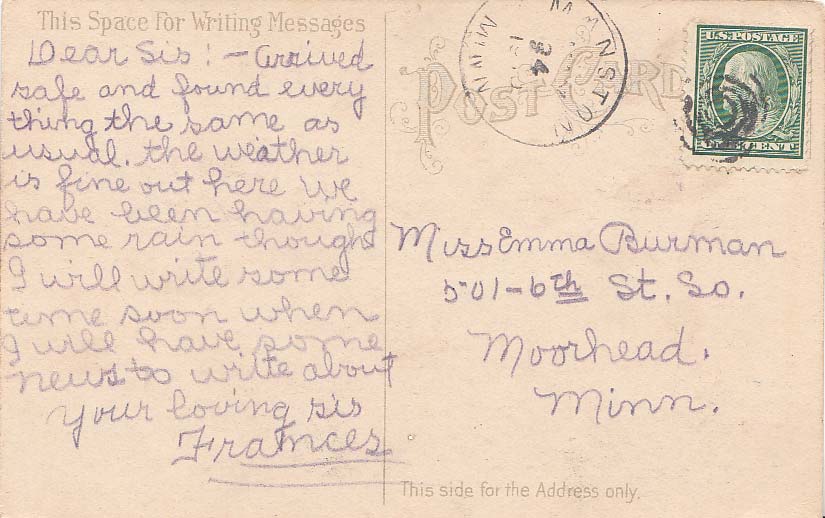 This Space For Writing Messages
Dear Sis! - Arrived
safe and found every
thing the same as
usual. the weather
is fine out here We
have been having
some rain though
I will write some
time soon when
I will have some
news to write about
Your loving sis
Frances
POST CARD
U.S. POSTAGE
ONE CENT
Miss Emma Burman
501-6th St. So.
Moorhead.
Minn.
This side for the Address only.